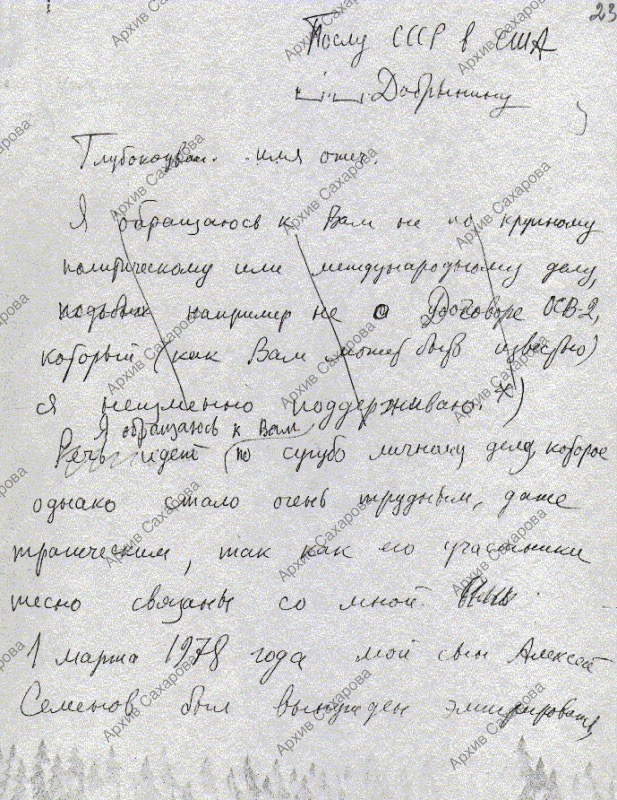 23
Послу СССР в США
Добрынину
Глубокоуваж. имя отч.
Я обращаюсь к Вам не по крупному
политическому или международному делу,
например не о Договоре ОСВ-2,
который (как Вам может быть известно)
я неизменно поддерживаю. *)
Я обращаюсь к Вам
Речь идет (по сугубо личному делу, которое
однако стало очень трудным, даже
трагическим, так как его участники
тесно связаны со мной.
1 марта 1978 года мой сын Алексей
Семенов был вынужден эмигрировать,
Архив Сахарова